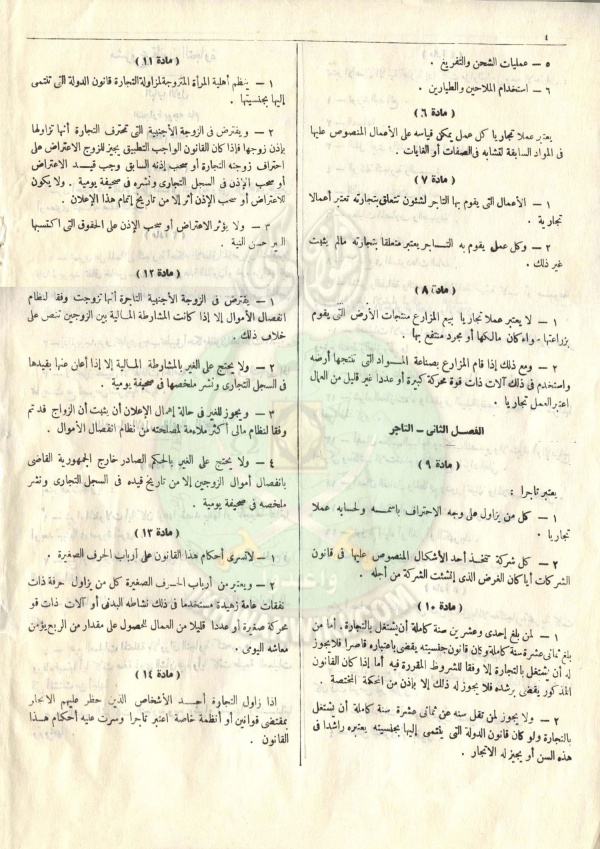 ٤
٥ — عمليات الشحن والتفريغ .
٦ — استخدام الملاحين والطيارين .
( مادة ٦ )
يعتبر عملا تجاريا كل عمل يمكن قياسه على الأعمال المنصوص عليها
فى المواد السابقة لتشابه فى الصفات أو الغايات .
( مادة ٧ )
١ — الأعمال التى يقوم بها التاجر لشئون تتعلق بتجارته تعتبر أعمالا
تجارية .
٢ — وكل عمل يقوم به التاجر يعتبر متعلقا بتجارته مالم يثبت
غير ذلك .
( مادة ٨ )
١ — لا يعتبر عملا تجاريا بيع المزارع منتجات الأرض التى يقوم
بزراعتها سواء كان مالكها أو مجرد منتفع بها .
٢ — ومع ذلك إذا قام المزارع بصناعة المواد التى تنتجها أرضه
واستخدم فى ذلك آلات ذات قوة محركة كبيرة أو عددا غير قليل من العمال
اعتبر العمل تجاريا .
الفصل الثانى — التاجر
( مادة ٩ )
يعتبر تاجرا :
١ — كل من يزاول على وجه الاحتراف باسمه ولحسابه عملا
تجاريا .
٢ — كل شركة تتخذ أحد الأشكال المنصوص عليها فى قانون
الشركات أيا كان الغرض الذى أنشئت الشركة من أجله .
( مادة ١٠ )
١ — لمن بلغ إحدى وعشرين سنة كاملة أن يشتغل بالتجارة . أما من
بلغ ثمانى عشرة سنة كاملة وكان قانون جنسيته يقضى باعتباره قاصرا فلا يجوز
له أن يشتغل بالتجارة إلا وفقا للشروط المقررة فيه أما إذا كان القانون
المذكور يقضى برشده فلا يجوز له ذلك إلا بإذن من المحكمة المختصة .
٢ — ولا يجوز لمن تقل سنه عن ثمانى عشرة سنة كاملة أن يشتغل
بالتجارة ولو كان قانون الدولة التى ينتمى إليها بجنسيته يعتبره راشدا فى
هذه السن أو يجيز له الاتجار .
( مادة ١١ )
١ — ينظم أهلية المرأة المتزوجة لمزاولة التجارة قانون الدولة التى تنتمى
إليها بجنسيتها .
٢ — ويفترض فى الزوجة الأجنبية التى تحترف التجارة أنها تزاولها
بإذن زوجها فإذا كان القانون الواجب التطبيق يجيز للزوج الاعتراض على
احتراف زوجته التجارة أو سحب إذنه السابق وجب قيد الاعتراض
أو سحب الإذن فى السجل التجارى ونشره فى صحيفة يومية . ولا يكون
للاعتراض أو سحب الإذن أثر إلا من تاريخ إتمام هذا الإعلان .
٣ — ولا يؤثر الاعتراض أو سحب الإذن على الحقوق التى اكتسبها
الغير حسن النية .
( مادة ١٢ )
١ — يفترض فى الزوجة الأجنبية التاجرة أنها تزوجت وفقا لنظام
انفصال الأموال إلا إذا كانت المشارطة المالية بين الزوجين تنص على
خلاف ذلك .
٢ — ولا يحتج على الغير بالمشارطة المالية إلا إذا أعلن عنها بقيدها
فى السجل التجارى ونشر ملخصها فى صحيفة يومية .
٣ — ويجوز للغير فى حالة إهمال الإعلان أن يثبت أن الزواج قد تم
وفقا لنظام مالى أكثر ملاءمة لمصلحته من نظام انفصال الأموال .
٤ — ولا يحتج على الغير بالحكم الصادر خارج الجمهورية القاضى
بانفصال أموال الزوجين إلا من تاريخ قيده فى السجل التجارى ونشر
ملخصه فى صحيفة يومية .
( مادة ١٣ )
١ — لا تسرى أحكام هذا القانون على أرباب الحرف الصغيرة .
٢ — ويعتبر من أرباب الحرف الصغيرة كل من يزاول حرفة ذات
نفقات عامة زهيدة مستخدما فى ذلك نشاطه البدنى أو آلات ذات قوة
محركة صغيرة أو عددا قليلا من العمال للحصول على مقدار من الربح يؤمن
معاشه اليومى .
( مادة ١٤ )
اذا زاول التجارة أحد الأشخاص الذين حظر عليهم الاتجار
بمقتضى قوانين أو أنظمة خاصة اعتبر تاجرا وسرت عليه أحكام هذا
القانون .